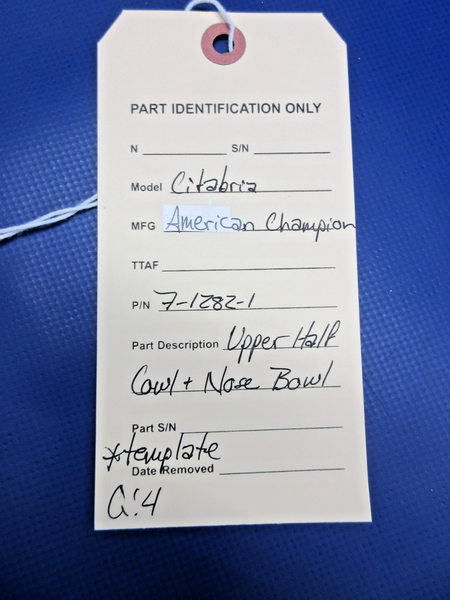 PART IDENTIFICATION ONLY
N ________ S/N ________
Model Citabria
MFG American Champion
TTAF ________
P/N 7-1282-1
Part Description Upper Half
Cowl + Nose Bowl
Part S/N ________
*template
Date Removed ________
Q:4